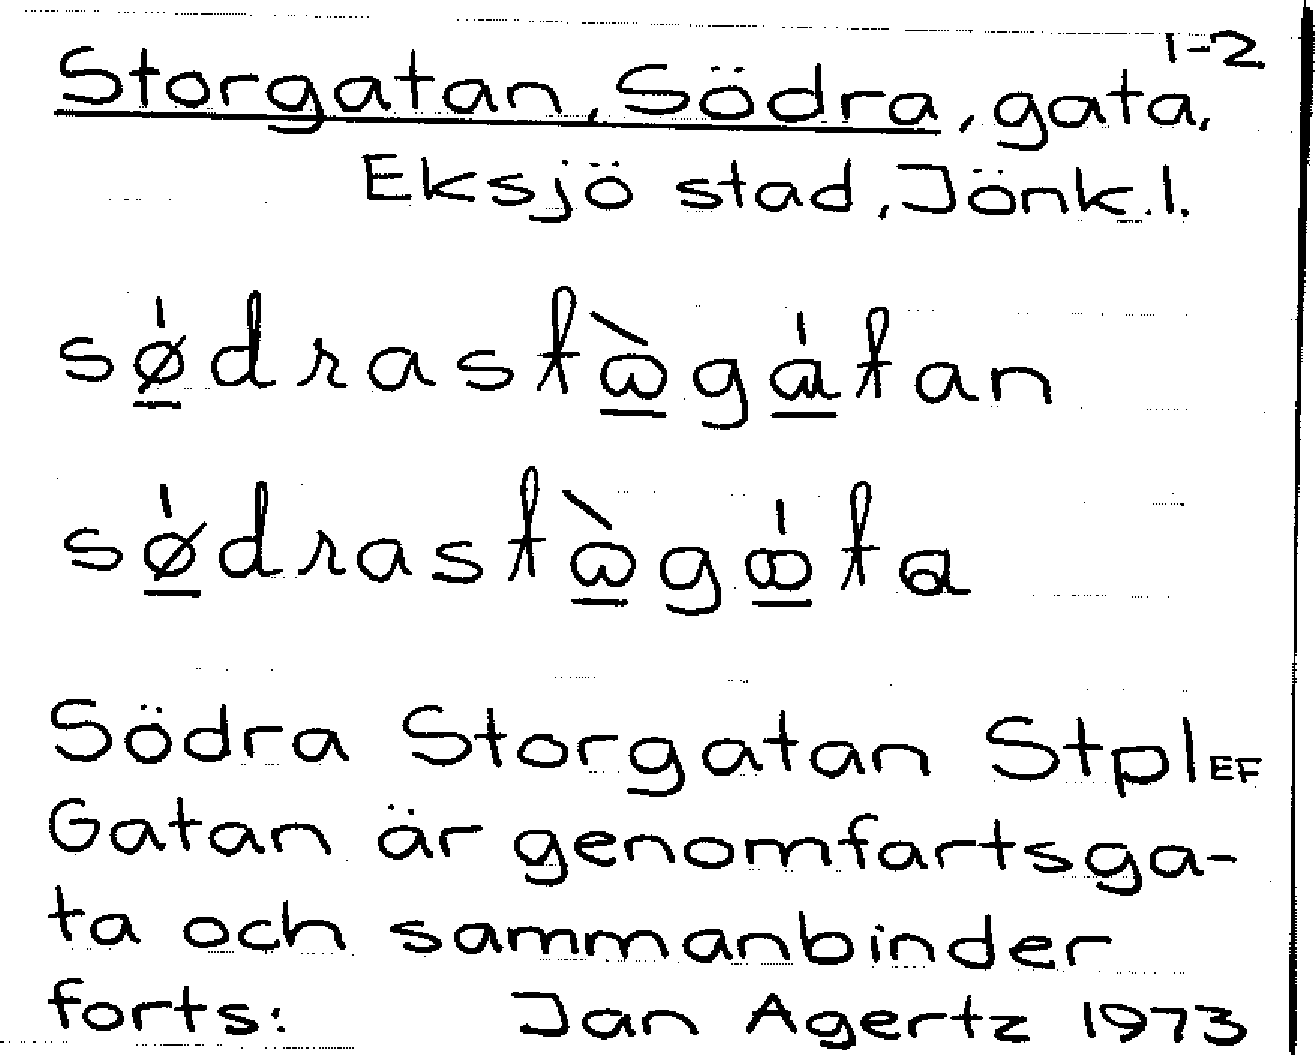 1-2
Storgatan, Södra, gata,
Eksjö stad, Jönk.l.
Södra Storgatan Stpl EF
Gatan är genomfartsga-
ta och sammanbinder
forts: Jan Agertz 1973